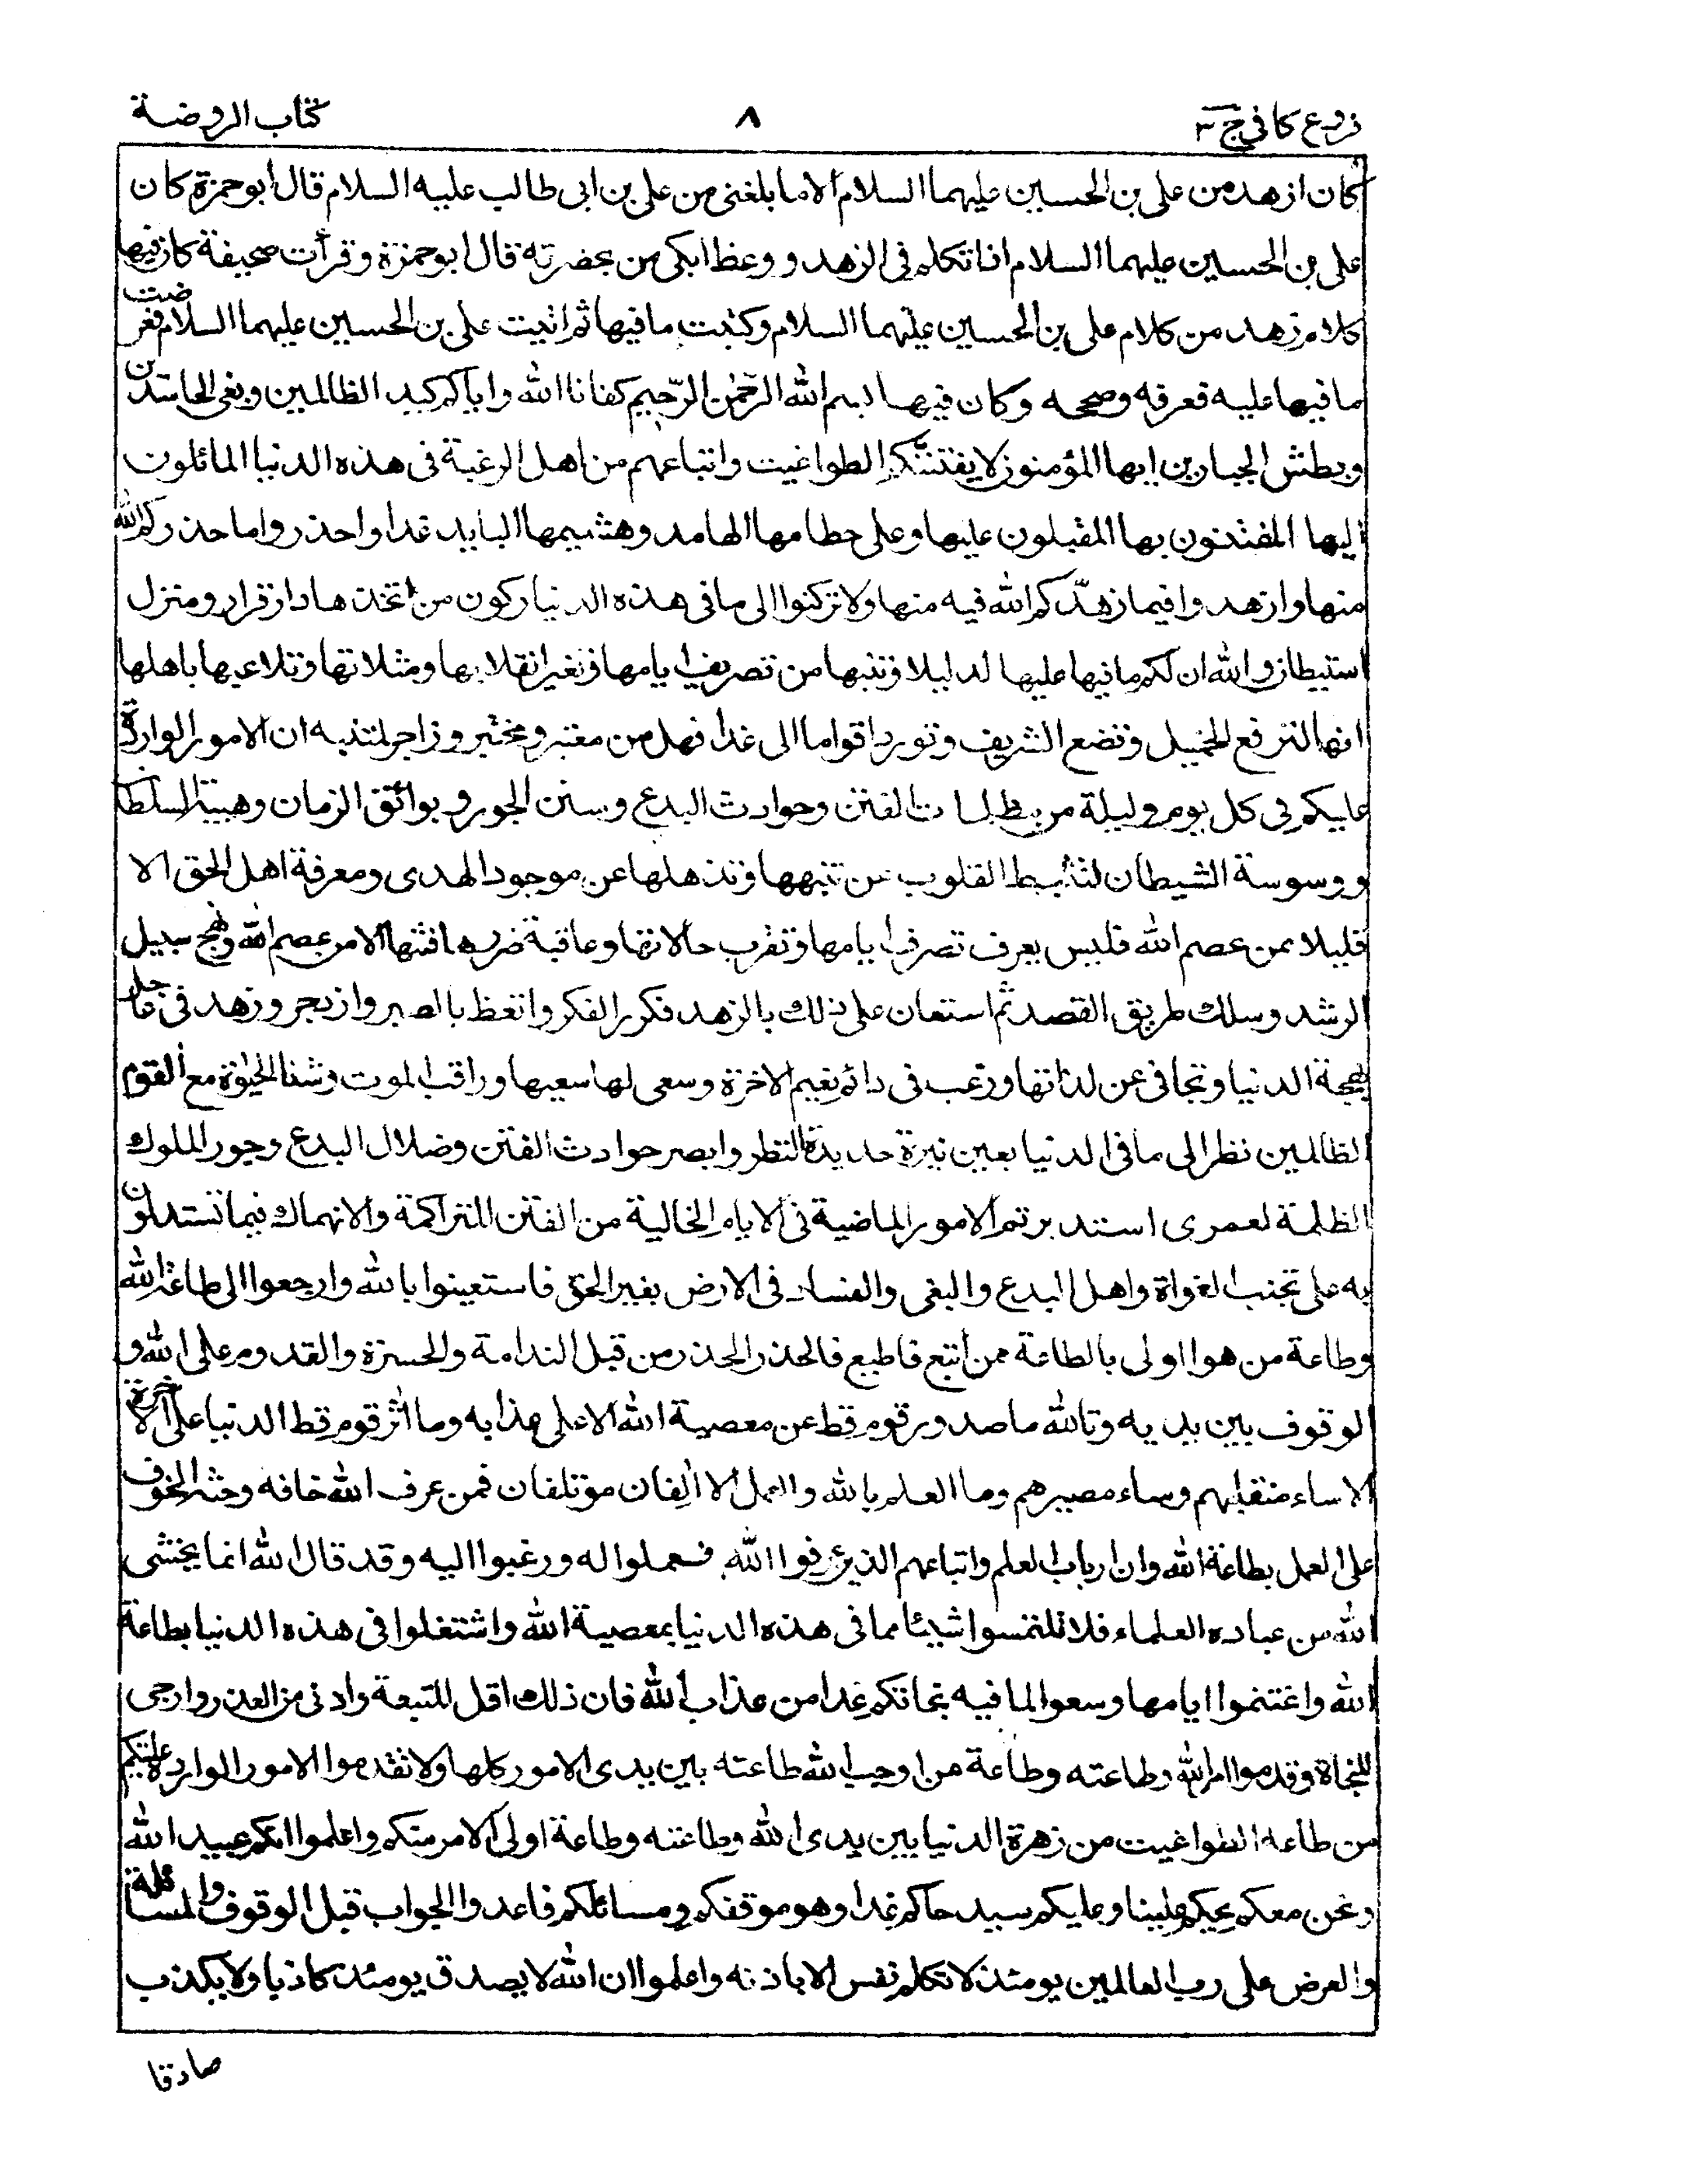 فروع كافي ج ٣
٨
كتاب الروضة
كان ازهد من على بن الحسين عليهما السلام الا ما بلغنى من على بن ابى طالب عليه السلام قال ابو حمزة كان
على بن الحسين عليهما السلام اذا تكلم فى الزهد ووعظ ابكى من بحضرته قال ابو حمزة وقرأت صحيفة كان فيها
كلام زهد من كلام على بن الحسين عليهما السلام وكتبت ما فيها ثم اتيت على بن الحسين عليهما السلام فعرضت
ما فيها عليه فعرفه وصححه وكان فيها بسم الله الرّحمٰن الرّحيم كفانا الله واياكم كيد الظالمين وبغى الحاسدين
وبطش الجبارين ايها المؤمنون لا يفتننّكم الطواغيت واتباعهم من اهل الرغبة فى هذه الدنيا المائلون
اليها المفتنون بها المقبلون عليها وعلى حطامها الهامد وهشيمها البايد غدا واحذروا ما حذركم الله
منها وازهدوا فيما زهّدكم الله فيه منها ولا تركنوا الى ما فى هذه الدنيا ركون من اتخذها دار قرار ومنزل
استيطان والله ان لكم مما فيها عليها لدليلا وتنبها من تصريف ايامها وتغير انقلابها ومثلاتها وتلاعبها باهلها
انها لترفع الخميل وتضع الشريف وتورد اقواما الى غدا فهل من معتبر ومختبر وزاجر لمنتبه ان الامور الواردة
عليكم فى كل يوم وليلة من مظلمات الفتن وحوادث البدع وسنن الجور وبوائق الزمان وهيبة السلطا
ووسوسة الشيطان لتثبط القلوب عن تنبهها وتذهلها عن موجود الهدى ومعرفة اهل الحق الا
قليلا ممن عصم الله فليس يعرف تصرف ايامها وتقرب حالاتها وعاقبة ضرر فتنتها الا من عصم الله ونهج سبيل
الرشد وسلك طريق القصد ثم استعان على ذلك بالزهد فكرر الفكر واتعظ بالصبر وازدجر وزهد فى عاجل
بهجة الدنيا وتجافى عن لذاتها ورغب فى دائم نعيم الاخرة وسعى لها سعيها وراقب الموت وشنا الحيوٰة مع القوم
الظالمين نظر الى ما فى الدنيا بعين نيرة حديدة النظر وابصر حوادث الفتن وضلال البدع وجور الملوك
الظلمة لعمرى استدبرتم الامور الماضية فى الايام الخالية من الفتن المتراكمة والانهماك فيما تستدلون
به على تجنب الغواة واهل البدع والبغى والفساد فى الارض بغير الحق فاستعينوا بالله وارجعوا الى طاعة الله
وطاعة من هو اولى بالطاعة ممن اتبع فاطيع فالحذر الحذر من قبل الندامة والحسرة والقدوم على الله و
الوقوف بين يديه وتالله ما صدر قوم قط عن معصية الله الا على عذابه وما اثر قوم قط الدنيا على الاخرة
الا ساء منقلبهم وساء مصيرهم وما العلم بالله والعمل الا الفان موتلفان فمن عرف الله خافه وحثه الخوف
على العمل بطاعة الله وان ارباب العلم واتباعهم الذين عرفوا الله فعملوا له ورغبوا اليه وقد قال الله انما يخشى
الله من عباده العلماء فلا تلتمسوا شيئا مما فى هذه الدنيا بمعصية الله واشتغلوا فى هذه الدنيا بطاعة
الله واغتنموا ايامها وسعوا لما فيه نجاتكم غدا من عذاب الله فان ذلك اقل للتبعة وادنى من العذر وارجى
للنجاة وقدموا امر الله وطاعته وطاعة من اوجب الله طاعته بين يدى الامور كلها ولا تقدموا الامور الواردة عليكم
من طاعة الطواغيت من زهرة الدنيا بين يدى الله وطاعته وطاعة اولى الامر منكم واعلموا انكم عبيد الله
ونحن معكم يحكم علينا وعليكم سيد حاكم غدا وهو موقفكم ومسائلكم فاعدوا الجواب قبل الوقوف والمسائلة
والعرض على رب العالمين يومئذ لا تكلم نفس الا باذنه واعلموا ان الله لا يصدق يومئذ كاذبا ولا يكذب
صادقا